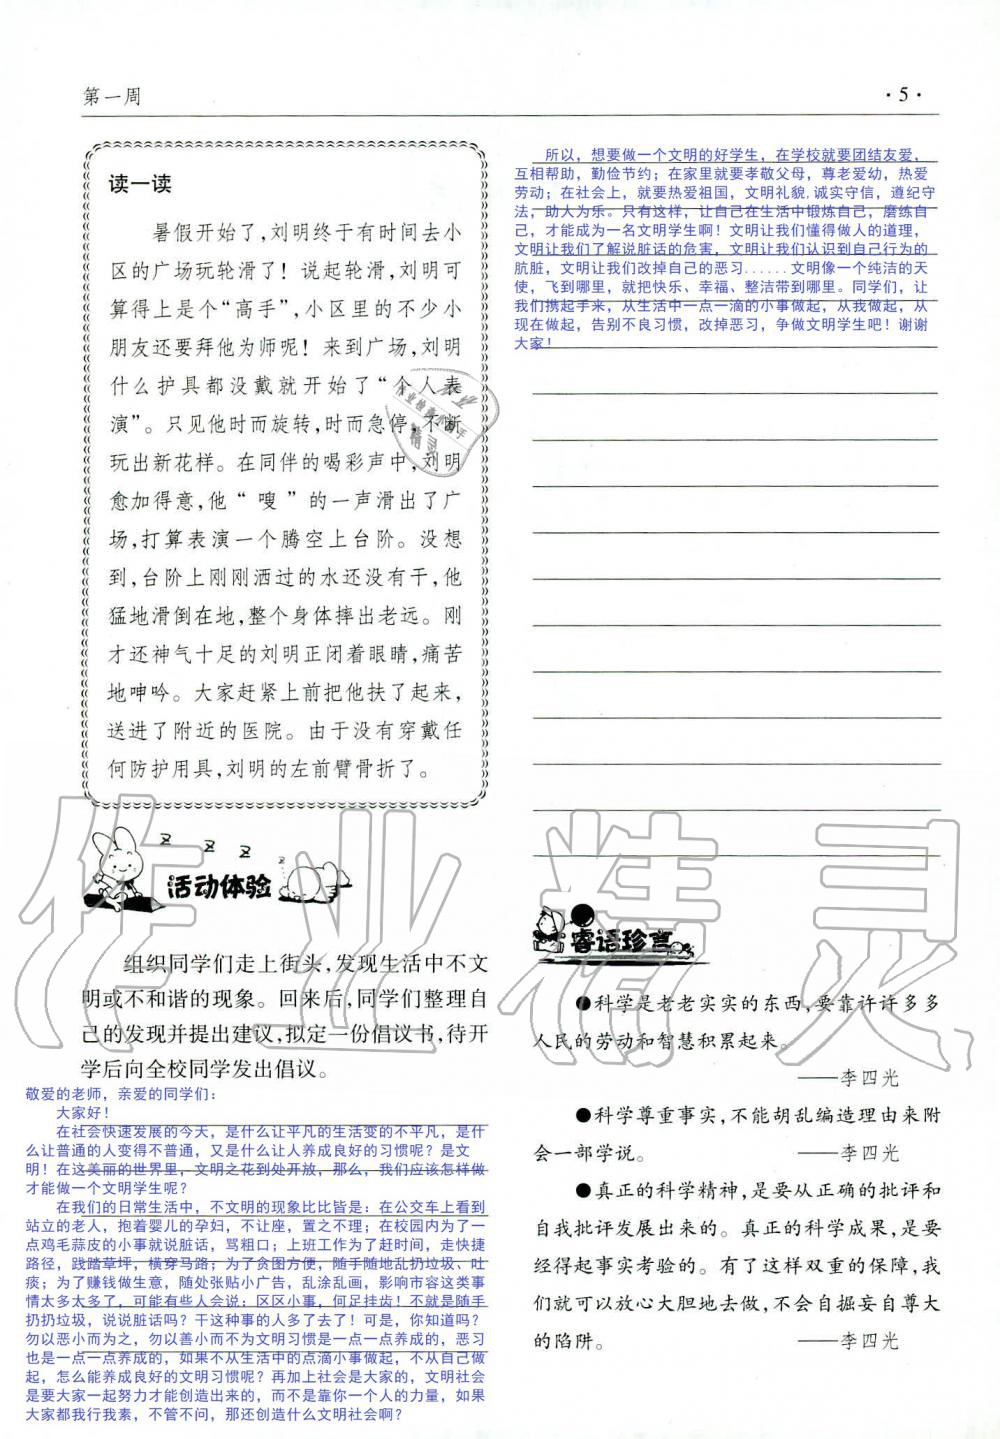 第一周
·5·
读一读
暑假开始了,刘明终于有时间去小
区的广场玩轮滑了！说起轮滑,刘明可
算得上是个“高手”,小区里的不少小
朋友还要拜他为师呢！来到广场,刘明
什么护具都没戴就开始了“个人表
演”。只见他时而旋转,时而急停,不断
玩出新花样。在同伴的喝彩声中,刘明
愈加得意,他“嗖”的一声滑出了广
场,打算表演一个腾空上台阶。没想
到,台阶上刚刚洒过的水还没有干,他
猛地滑倒在地,整个身体摔出老远。刚
才还神气十足的刘明正闭着眼睛,痛苦
地呻吟。大家赶紧上前把他扶了起来,
送进了附近的医院。由于没有穿戴任
何防护用具,刘明的左前臂骨折了。
z z z z
活动体验
组织同学们走上街头,发现生活中不文
明或不和谐的现象。回来后,同学们整理自
己的发现并提出建议,拟定一份倡议书,待开
学后向全校同学发出倡议。
敬爱的老师，亲爱的同学们：
大家好！
在社会快速发展的今天，是什么让平凡的生活变的不平凡，是什
么让普通的人变得不普通，又是什么让人养成良好的习惯呢？是文
明！在这美丽的世界里，文明之花到处开放，那么，我们应该怎样做
才能做一个文明学生呢？
在我们的日常生活中，不文明的现象比比皆是：在公交车上看到
站立的老人，抱着婴儿的孕妇，不让座，置之不理；在校园内为了一
点鸡毛蒜皮的小事就说脏话，骂粗口；上班工作为了赶时间，走快捷
路径，践踏草坪，横穿马路；为了贪图方便，随手随地乱扔垃圾、吐
痰；为了赚钱做生意，随处张贴小广告，乱涂乱画，影响市容这类事
情太多太多了，可能有些人会说：区区小事，何足挂齿！不就是随手
扔扔垃圾，说说脏话吗？干这种事的人多了去了！可是，你知道吗？
勿以恶小而为之，勿以善小而不为文明习惯是一点一点养成的，恶习
也是一点一点养成的，如果不从生活中的点滴小事做起，不从自己做
起，怎么能养成良好的文明习惯呢？再加上社会是大家的，文明社会
是要大家一起努力才能创造出来的，而不是靠你一个人的力量，如果
大家都我行我素，不管不问，那还创造什么文明社会啊？
所以，想要做一个文明的好学生，在学校就要团结友爱，
互相帮助，勤俭节约；在家里就要孝敬父母，尊老爱幼，热爱
劳动；在社会上，就要热爱祖国，文明礼貌,诚实守信，遵纪守
法，助人为乐。只有这样，让自己在生活中锻炼自己，磨练自
己，才能成为一名文明学生啊！文明让我们懂得做人的道理，
文明让我们了解说脏话的危害，文明让我们认识到自己行为的
肮脏，文明让我们改掉自己的恶习......文明像一个纯洁的天
使，飞到哪里，就把快乐、幸福、整洁带到哪里。同学们，让
我们携起手来，从生活中一点一滴的小事做起，从我做起，从
现在做起，告别不良习惯，改掉恶习，争做文明学生吧！谢谢
大家！
睿语珍言
●科学是老老实实的东西,要靠许许多多
人民的劳动和智慧积累起来。
——李四光
●科学尊重事实,不能胡乱编造理由来附
会一部学说。 ——李四光
●真正的科学精神,是要从正确的批评和
自我批评发展出来的。真正的科学成果,是要
经得起事实考验的。有了这样双重的保障,我
们就可以放心大胆地去做,不会自掘妄自尊大
的陷阱。 ——李四光
作业精灵